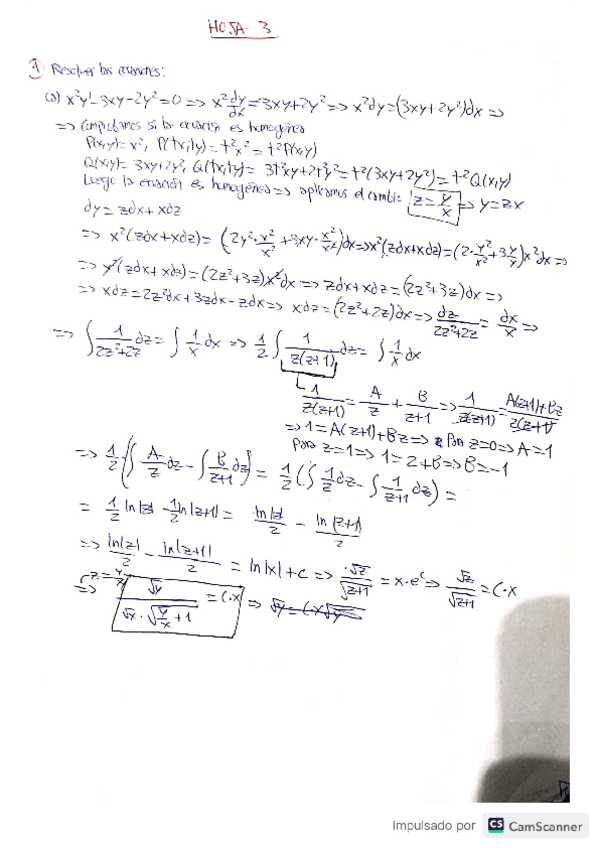 HOJA 3
1 Resolver las ecuaciones:
(a) x²y' - 3xy - 2y² = 0 => x² dy/dx = 3xy + 2y² => x²dy = (3xy + 2y²)dx =>
=> Comprobamos si la ecuación es homogénea
P(x,y) = x², P(tx,ty) = t²x² = t²P(x,y)
Q(x,y) = 3xy + 2y², Q(tx,ty) = 3t²xy + 2t²y² = t²(3xy + 2y²) = t²Q(x,y)
Luego la ecuación es homogénea => aplicamos el cambio z = y/x => y = zx
dy = zdx + xdz
=> x²(zdx + xdz) = (2y²·x²/x² + 3xy·x²/x²)dx => x²(zdx + xdz) = (2·y²/x² + 3y/x)x²dx =>
=> x²(zdx + xdz) = (2z² + 3z)x²dx => zdx + xdz = (2z² + 3z)dx =>
=> xdz = 2z²dx + 3zdx - zdx => xdz = (2z² + 2z)dx => dz/2z²+2z = dx/x =>
=> ∫ 1/2z²+2z dz = ∫ 1/x dx => 1/2 ∫ 1/z(z+1) dz = ∫ 1/x dx
1/z(z+1) = A/z + B/z+1 => 1/z(z+1) = A(z+1)+Bz/z(z+1)
=> 1 = A(z+1) + Bz => Para z=0 => A=1
Para z=1 => 1 = 2+B => B=-1
=> 1/2 (∫ A/z dz - ∫ B/z+1 dz) = 1/2 (∫ 1/z dz - ∫ 1/z+1 dz) =
= 1/2 ln|z| - 1/2 ln|z+1| = ln|z|/2 - ln|z+1|/2
=> ln|z|/2 - ln|z+1|/2 = ln|x| + c => √z/√z+1 = x·e^c => √z/√z+1 = C·x
z = y/x => √y/√x·√y/x + 1 = C·x => √y = C·x√
Impulsado por CS CamScanner